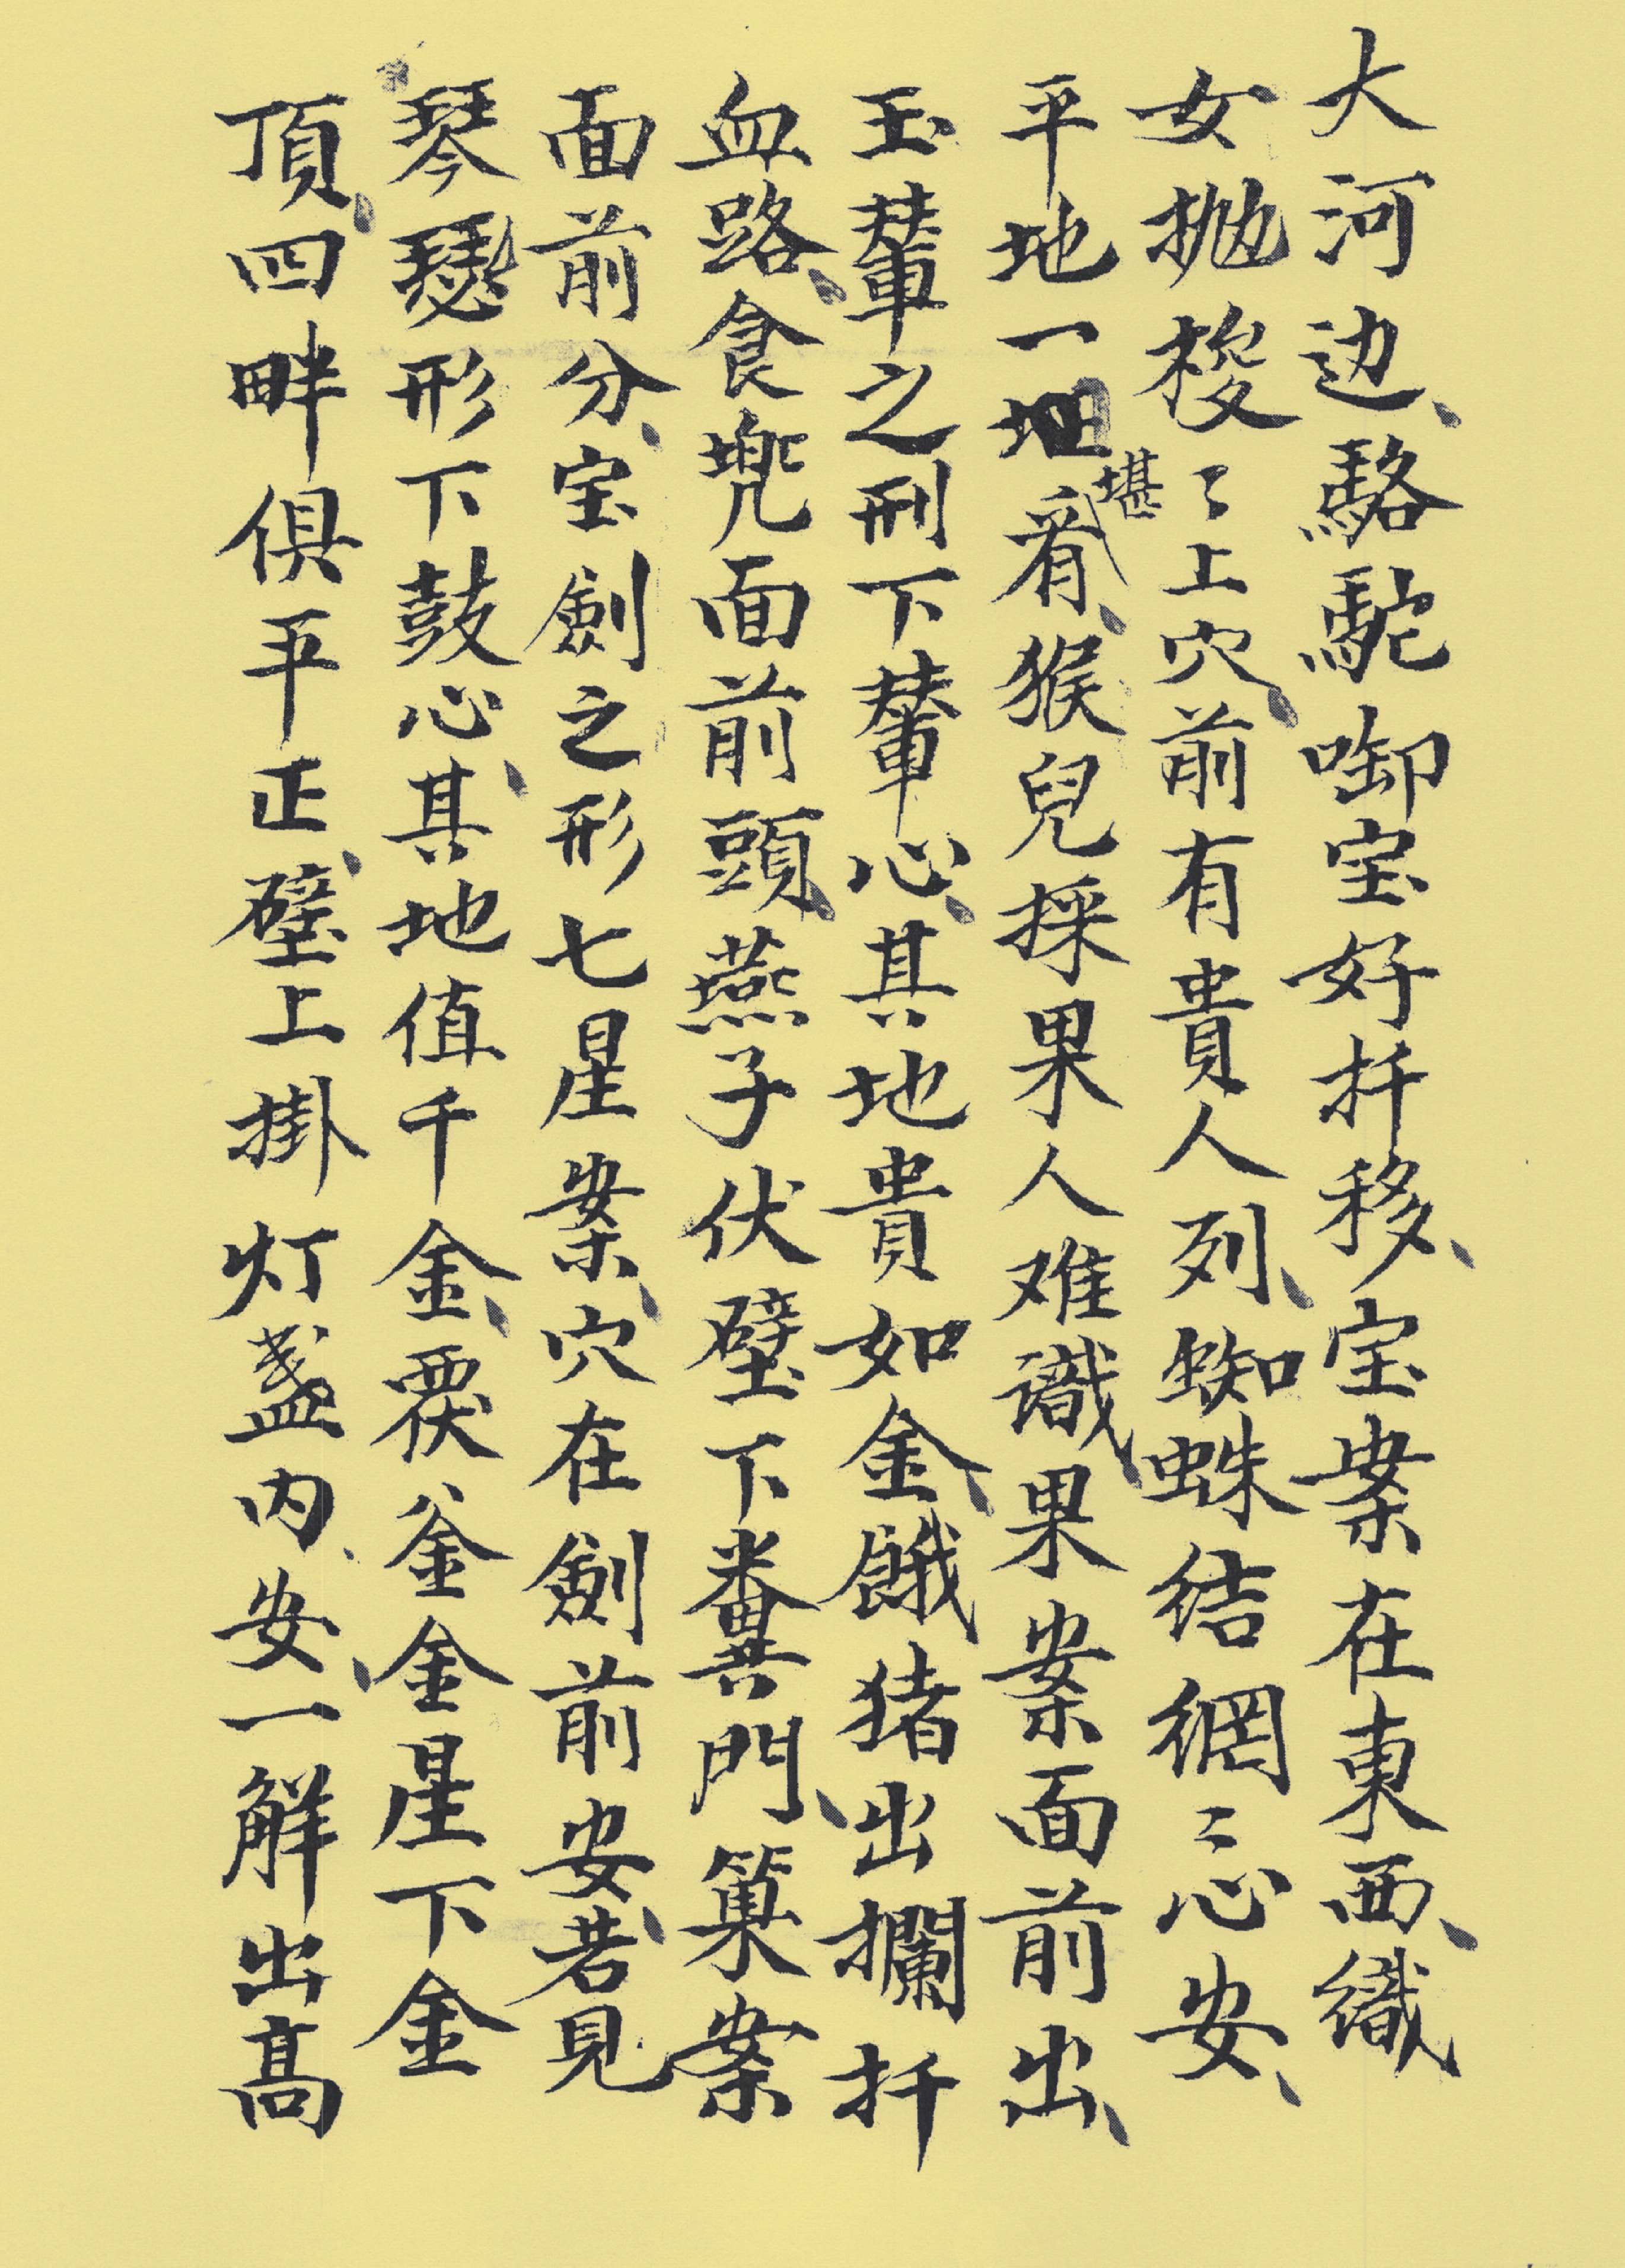 大河边、駱駝啣宝好扦移、宝案在東西、織
女抛梭〻上穴、前有貴人列、蜘蛛結網〻心安、
平地一坦堪看、猴兒採果人难識、果案面前出、
玉輦之刑下輦心、其地貴如金、餓猪出欄扦
血路、食兠面前頭、燕子伏壁下糞門、窠案
面前分、宝劍之形七星案、穴在劍前安、若見
琴瑟形下鼓心、其地值千金、覆釜金星下金
頂、四畔俱平正、壁上掛灯盞内安、一觧出高